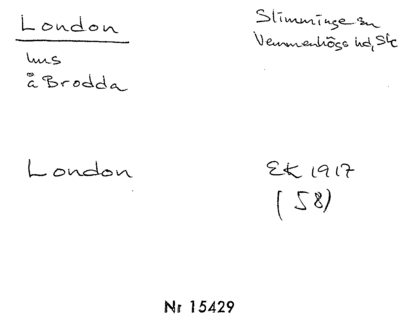 London
Slimminge sn
Vemmenhögs hd, Sk
hus
å Brodda
London
EK 1917
(58)
Nr 15429